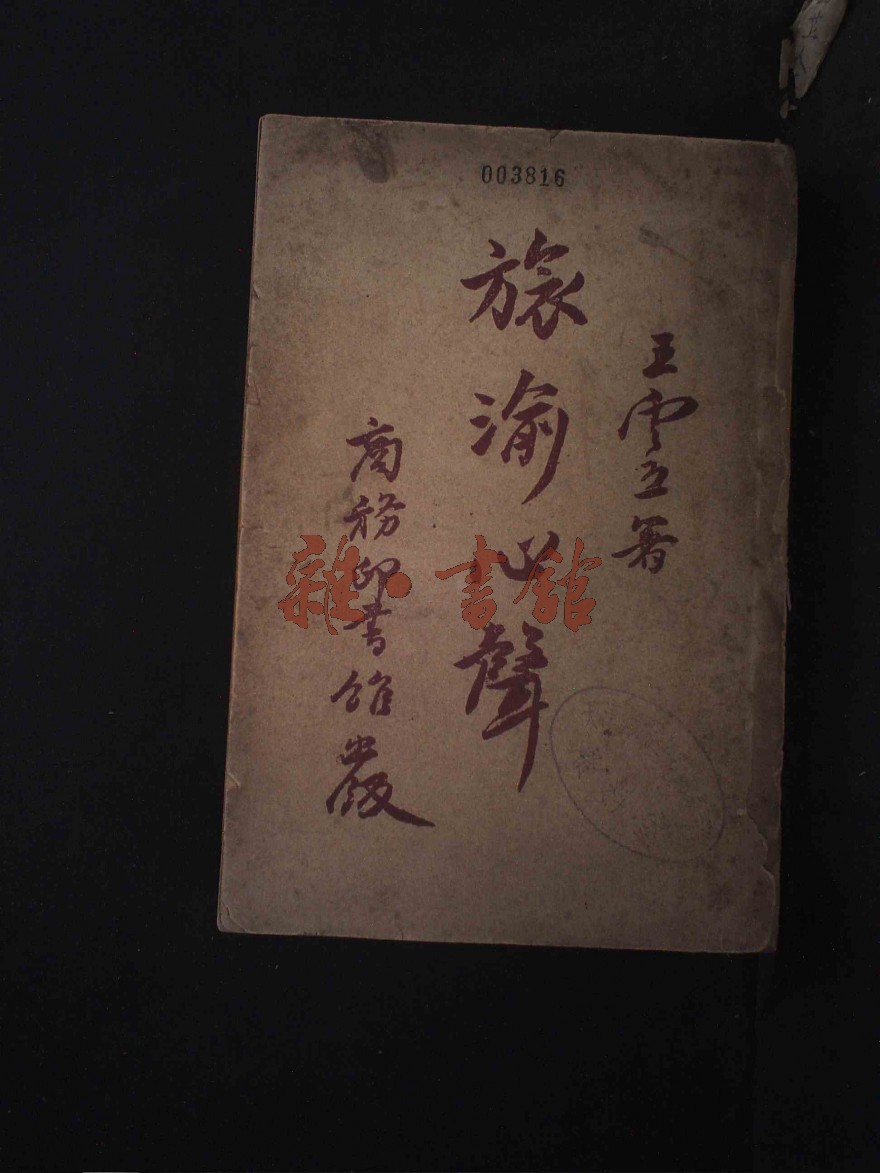 003816
王雲五著
旅渝心聲
商務印書館出版
雜·書館